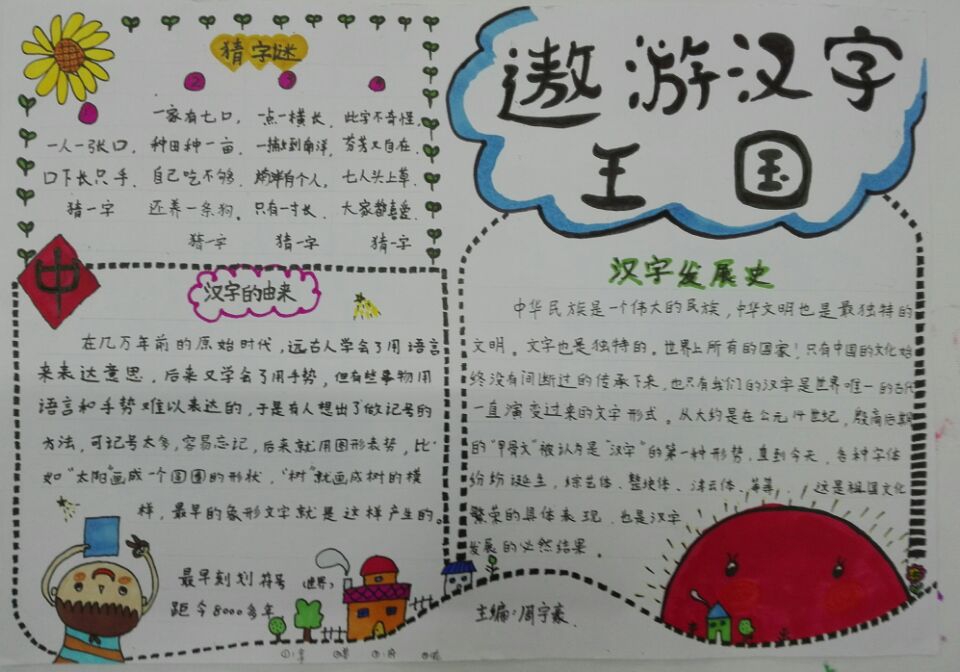 遨游汉字
王国
猜字谜
①
一人一张口，
口下长只手，
猜一字
②
一家有七口，
种田种一亩，
自己吃不够，
还养一条狗。
猜一字
③
一点一横长，
到南洋，
有个人，
只有一寸长，
猜一字
此字不奇怪，
芬芳又自在，
七人头上草，
大家都喜爱
猜一字
中
汉字的由来
在几万年前的原始时代，远古人学会了用语言
来表达意思，后来又学会了用手势，但有些事物用
语言和手势难以表达的，于是有人想出了做记号的
方法，可记号太多，容易忘记，后来就用图形表势，比
如“太阳”画成一个圆圈的形状，“树”就画成树的模
样，最早的象形文字就是这样产生的。
最早刻划符号（世界）
距今8000多年
汉字发展史
中华民族是一个伟大的民族，中华文明也是最独特的
文明。文字也是独特的。世界上所有的国家！只有中国的文化始
终没有间断过的传承下来，也只有我们的汉字是世界唯一的古代
一直演变过来的文字形式。从大约是在公元14世纪，殷商后期
的“甲骨文”被认为是“汉字”的第一种形势，直到今天，各种字体
纷纷诞生，综艺体、整块体、 等等 这是祖国文化
繁荣的具体表现，也是汉字
发展的必然结果。
主编：周宇豪